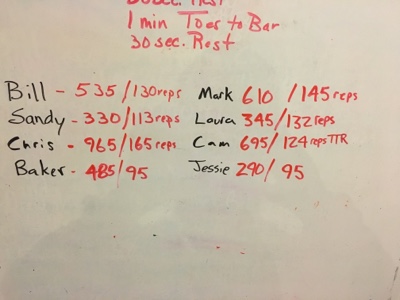 Rest
1 min Toes to Bar
30 sec. Rest
Bill - 535/130 reps Mark 610 /145 reps
Sandy - 330/113 reps Laura 345/132 reps
Chris - 965/165 reps Cam 695/124 reps TTR
Baker - 485/95 Jessie 290/ 95